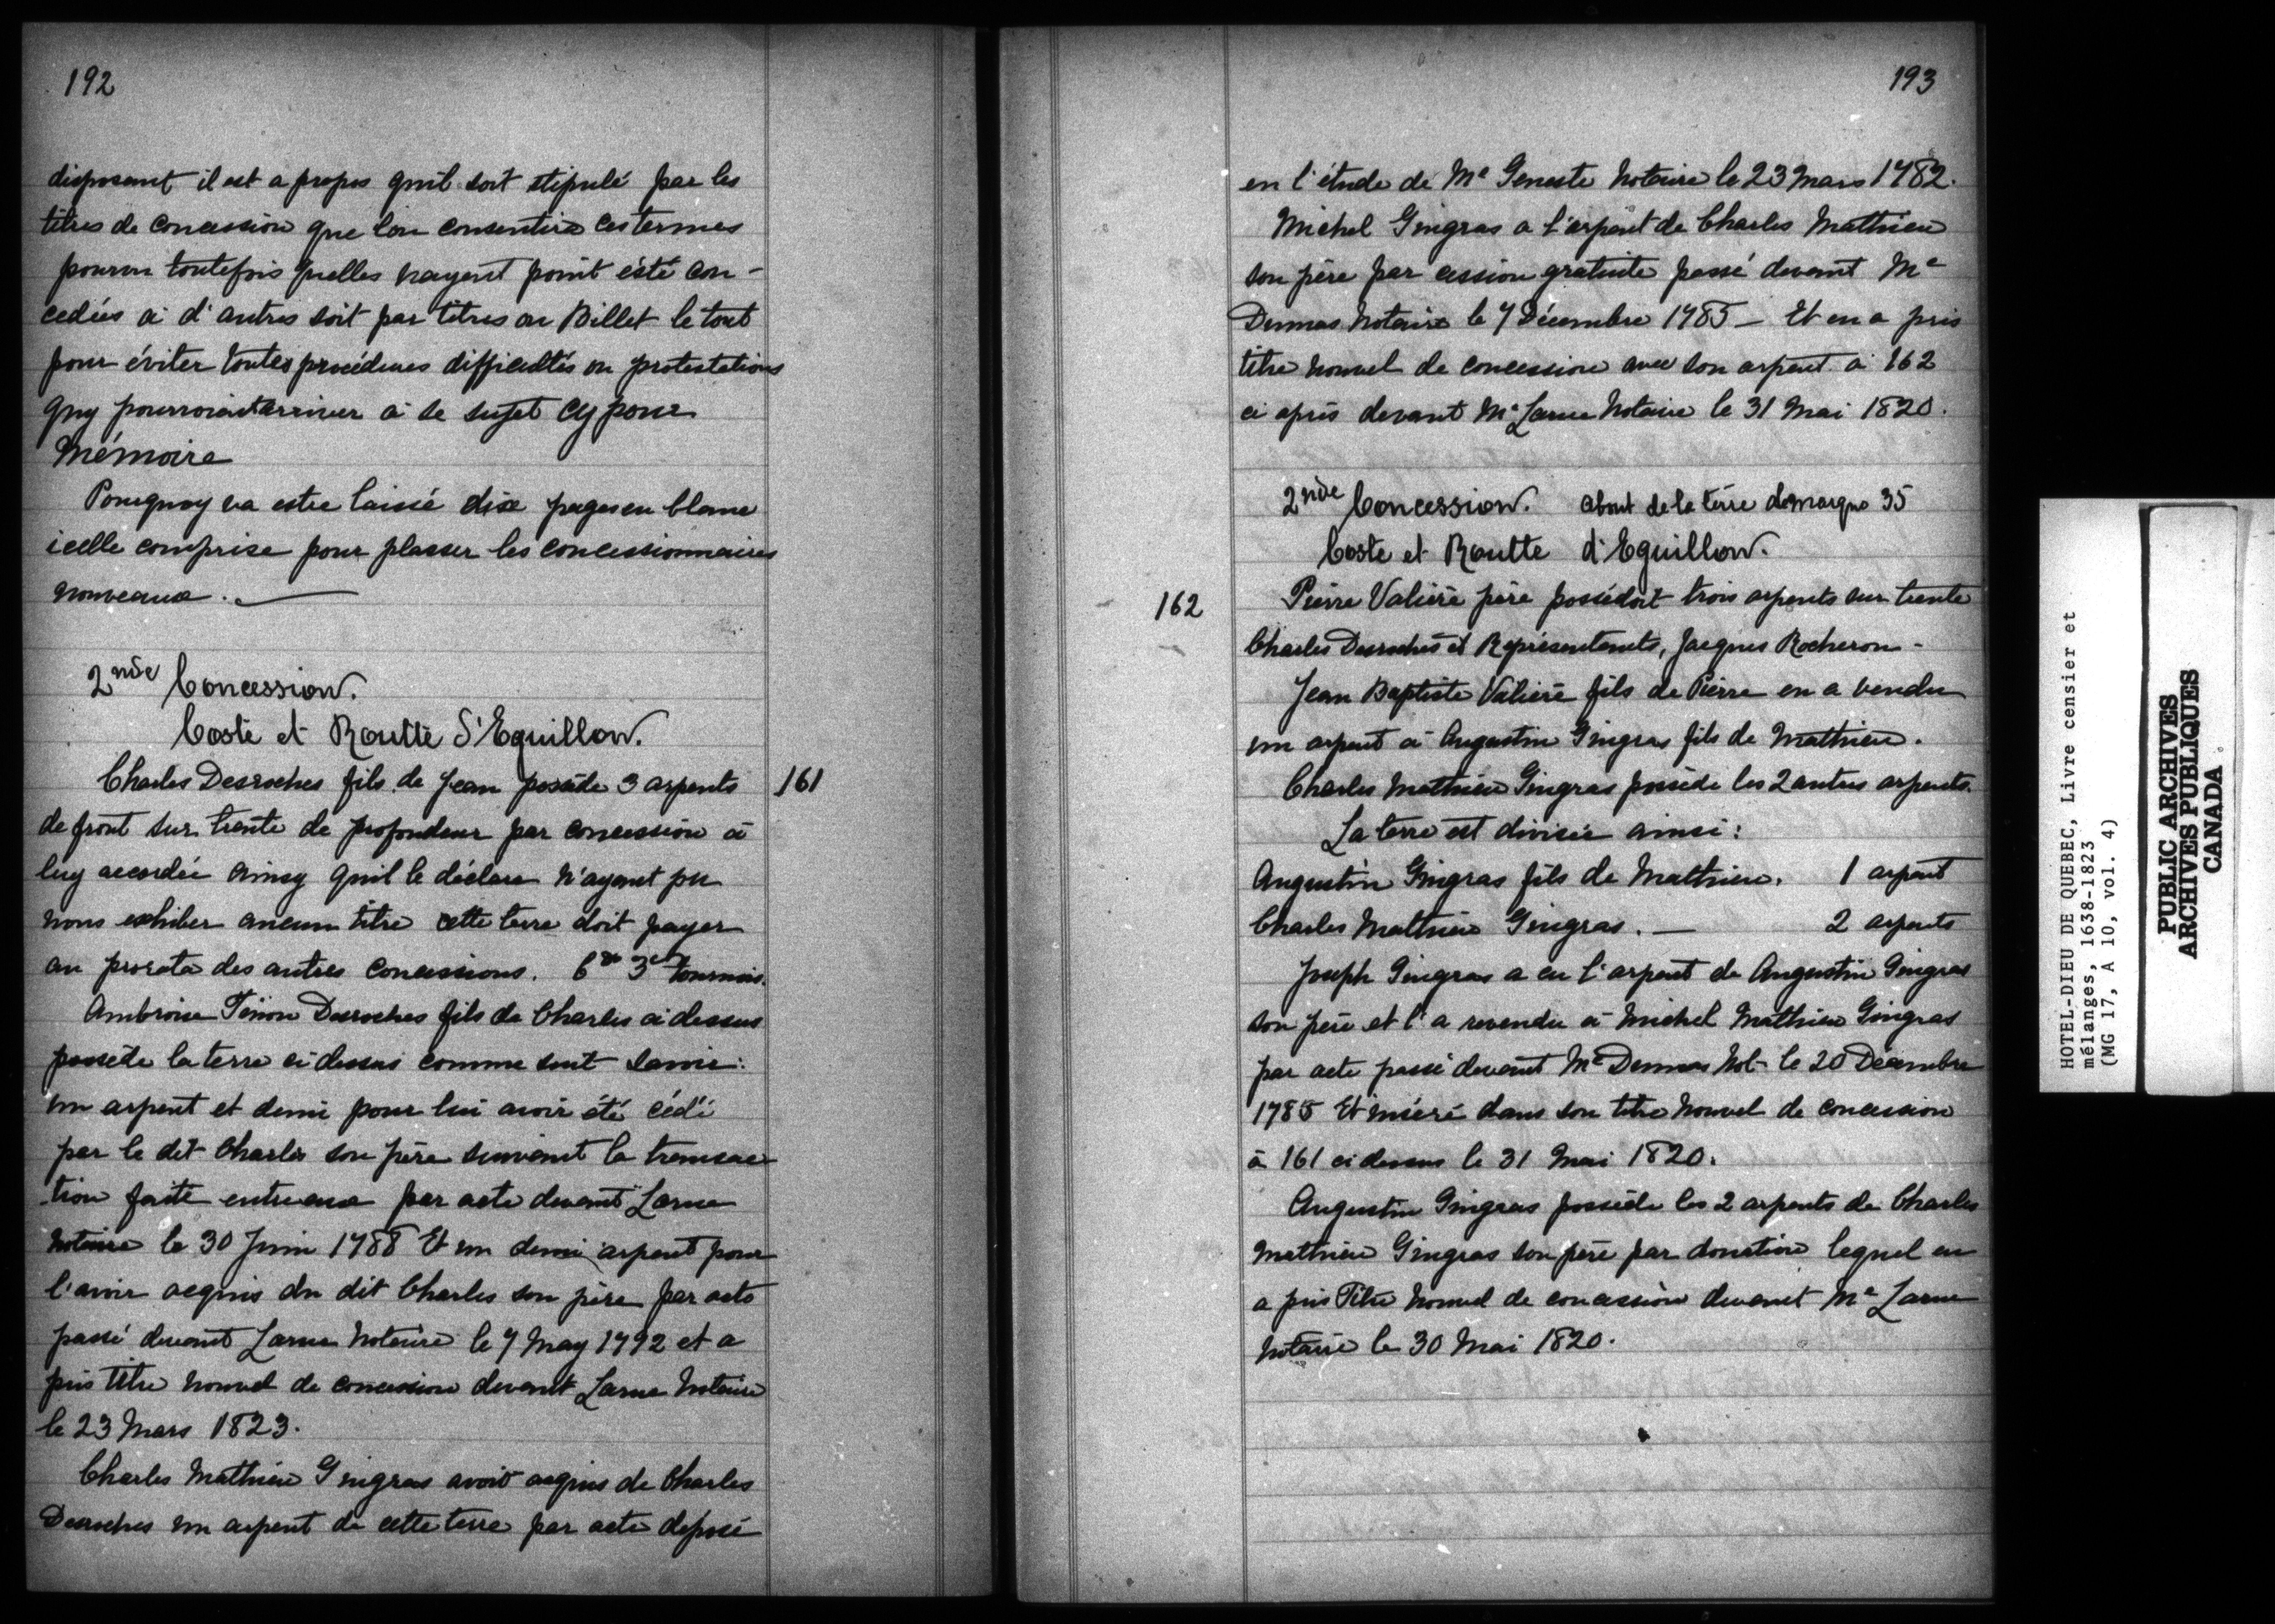 192
disposant il est a propos quil soit stipulé par les
titres de concession que lon consentira ces termes
pourvu toutefois quelles nayent point été con-
cedées à d'autres soit par titres ou Billet le tout
pour éviter toutes procédures difficultés ou protestations
quy pourroient arriver à se sujet cy pour
Mémoire
Pourquoy va estre laissé dix pages en blanc
icelle comprise pour plasser les concessionnaires
nouveaux.
2nde Concession.
Coste et Routte D'Eguillon.
Charles Desroches fils de Jean possède 3 arpents
161
de front sur trente de profondeur par concession à
luy accordée ainsy quil le déclare n'ayant pu
nous exhiber aucun titre cette terre doit payer
au prorata des autres concessions. tournois.
Ambroise Désroches fils de Charles ci dessus
possède la terre ci dessus comme suit savoir:
un arpent et demi pour lui avoir été cédé
par le dit Charles son père suivant la transac
tion faite entreaux par acte devant Larue
Notaire le 30 Juin 1788 Et un demi arpent pour
l'avoir acquis du dit Charles son père par acte
passé devant Larue Notaire le 7 May 1792 et a
pris titre nouvel de concession devant Larue Notaire
le 23 Mars 1823.
Charles Mathieu Gingras avoit acquis de Charles
Desroches un arpent de cette terre par acte déposé
193
en l'étude de Me Geneste Notaire le 23 Mars 1782.
Michel Gingras a l'arpent de Charles Mathieu
son père par cession gratuite passé devant Me
Dumas Notaire le 7 Décembre 1785 - Et en a pris
titre nouvel de concession avec son arpent à 162
ci après devant Me Larue Notaire le 31 Mai 1820.
2nde Concession. about de la terre demarque 35
Coste et Routte d'Eguillon.
162
Pierre Valière père possédoit trois arpents sur trente
Charles Desroches et Représentants, Jacques Rocheron -
Jean Baptiste Valière fils de Pierre en a vendu
un arpent à Augustin Gingras fils de Mathieu.
Charles Mathieu Gingras possède les 2 autres arpents.
La terre est divisée ainsi:
Augustin Gingras fils de Mathieu. 1 arpent
Charles Mathieu Gingras. — 2 arpents
Joseph Gingras a eu l'arpent de Augustin Gingras
son père et l'a revendu à Michel Mathieu Gingras
par acte passé devant Me Dumas Not- le 20 Décembre
1785 Et inséré dans son titre nouvel de concession
à 161 ci dessus le 31 Mai 1820.
Augustin Gingras possède les 2 arpents de Charles
Mathieu Gingras son père par donation lequel en
a pris Titre nouvel de concession devant Me Larue
Notaire le 30 Mai 1820.
HOTEL-DIEU DE QUEBEC, Livre censier et
mélanges, 1638-1823
(MG 17, A 10, vol. 4)
PUBLIC ARCHIVES
ARCHIVES PUBLIQUES
CANADA